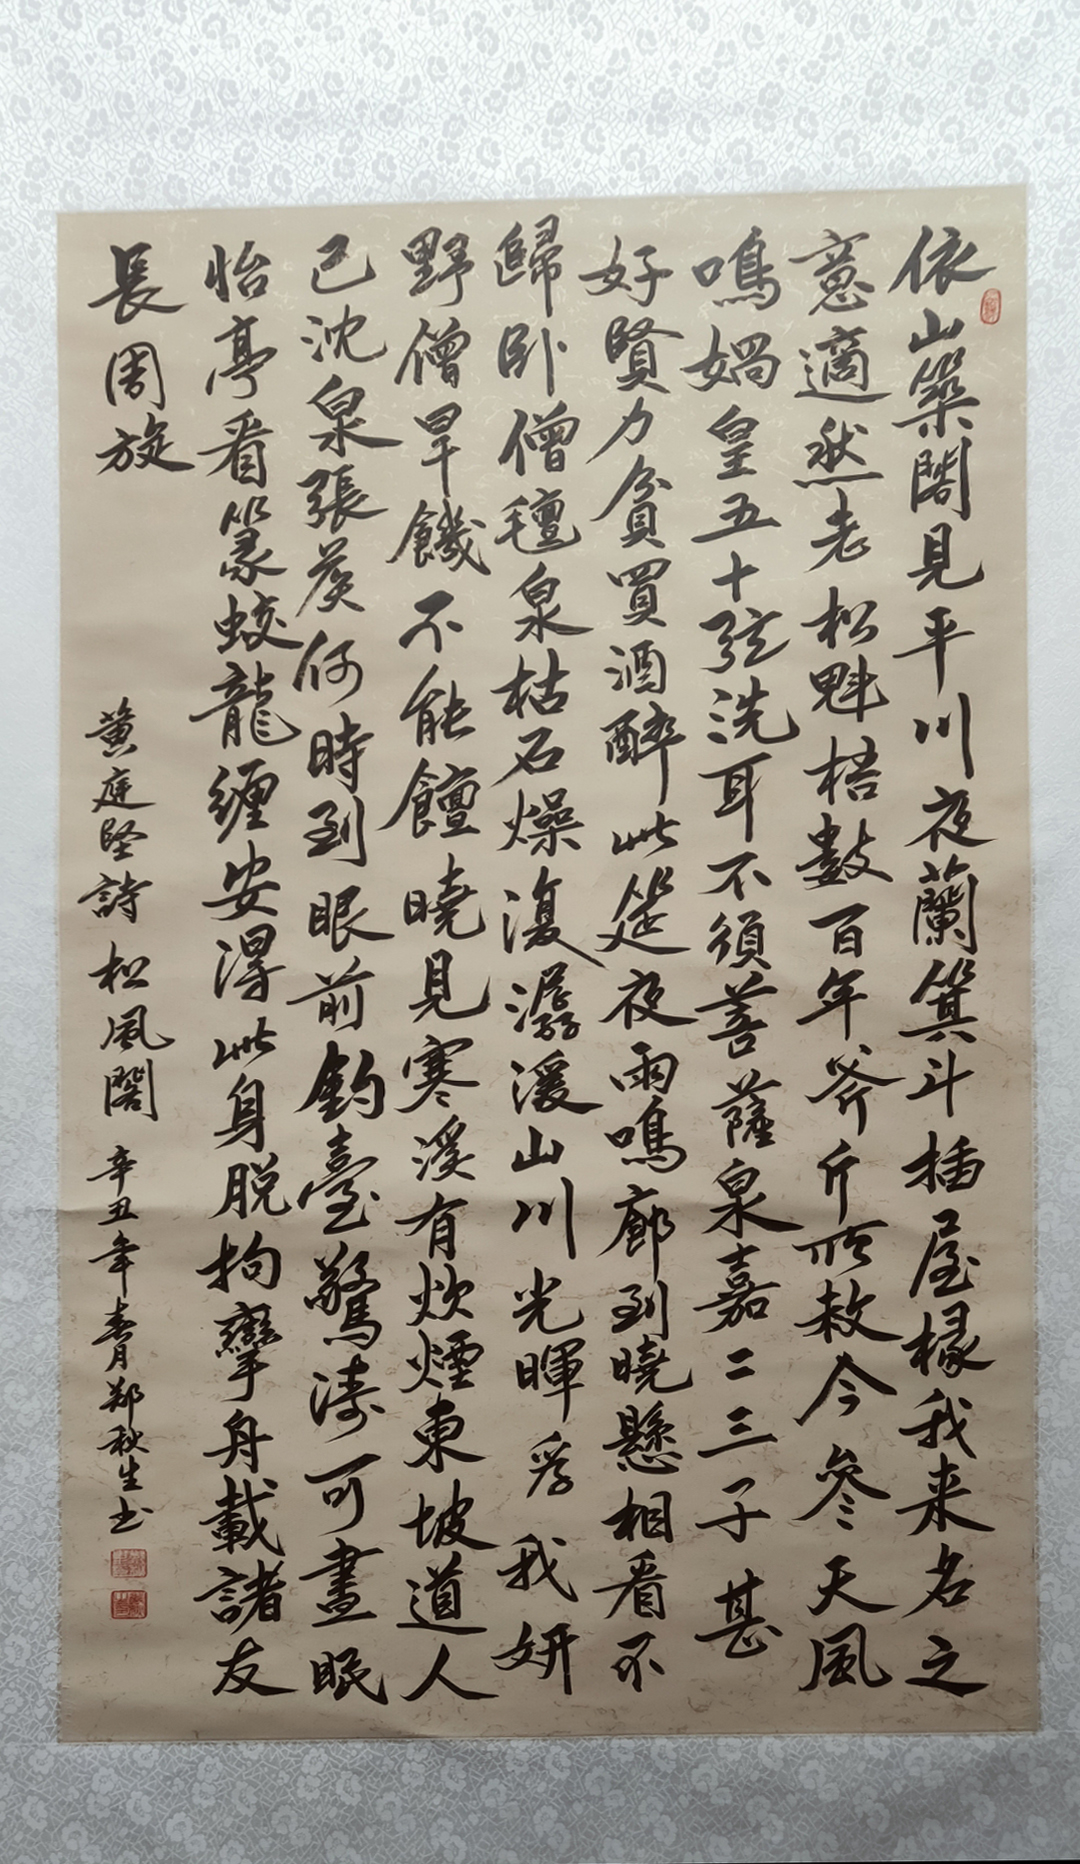 依山築閣見平川夜蘭箕斗插屋椽我来名之
意適然老松魁梧數百年斧斤所赦今參天風
鳴媧皇五十弦洗耳不須菩薩泉嘉二三子甚
好賢力貧買酒醉此筵夜雨鳴廊到曉懸相看不
歸臥僧氊泉枯石燥復潺湲山川光暉為我妍
野僧旱饑不能饘曉見寒溪有炊煙東坡道人
已沈泉張矦何時到眼前釣臺驚濤可畫眠
怡亭看篆蛟龍纏安得此身脱拘攣舟載諸友
長周旋
黄庭堅詩松風閣辛丑年春月鄭秋生书